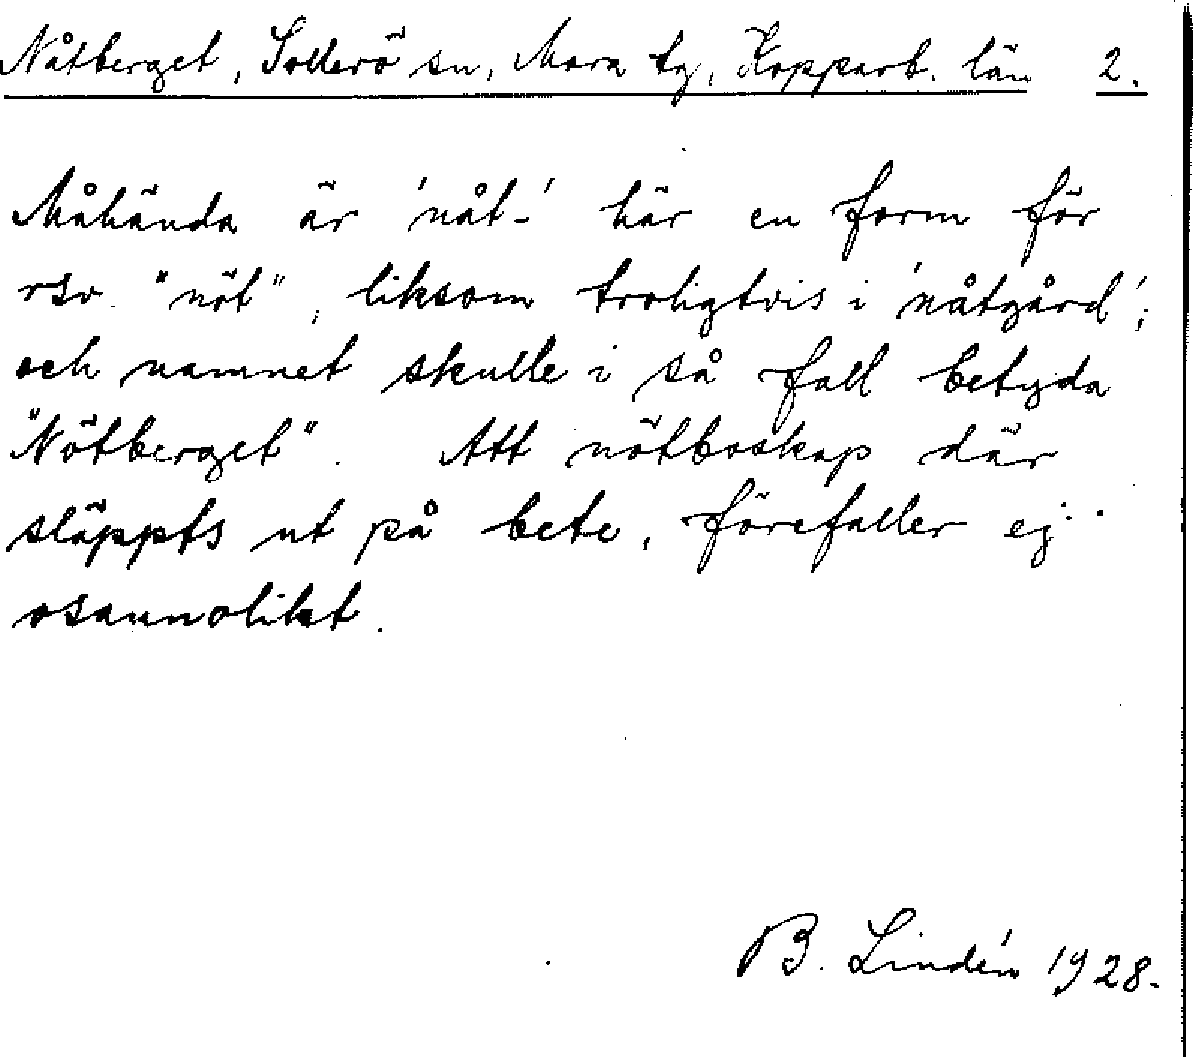 Nåtberget, Sollerö sn, Mora tg, Kopparb. län 2.
Måhända är 'nåt-' här en form för
rsv. "nöt", liksom troligtvis i 'nåtgård';
och namnet skulle i så fall betyda
"Nötberget". Att nötboskap där
släppts ut på bete, förefaller ej
osannolikt.
B. Lindén 1928.